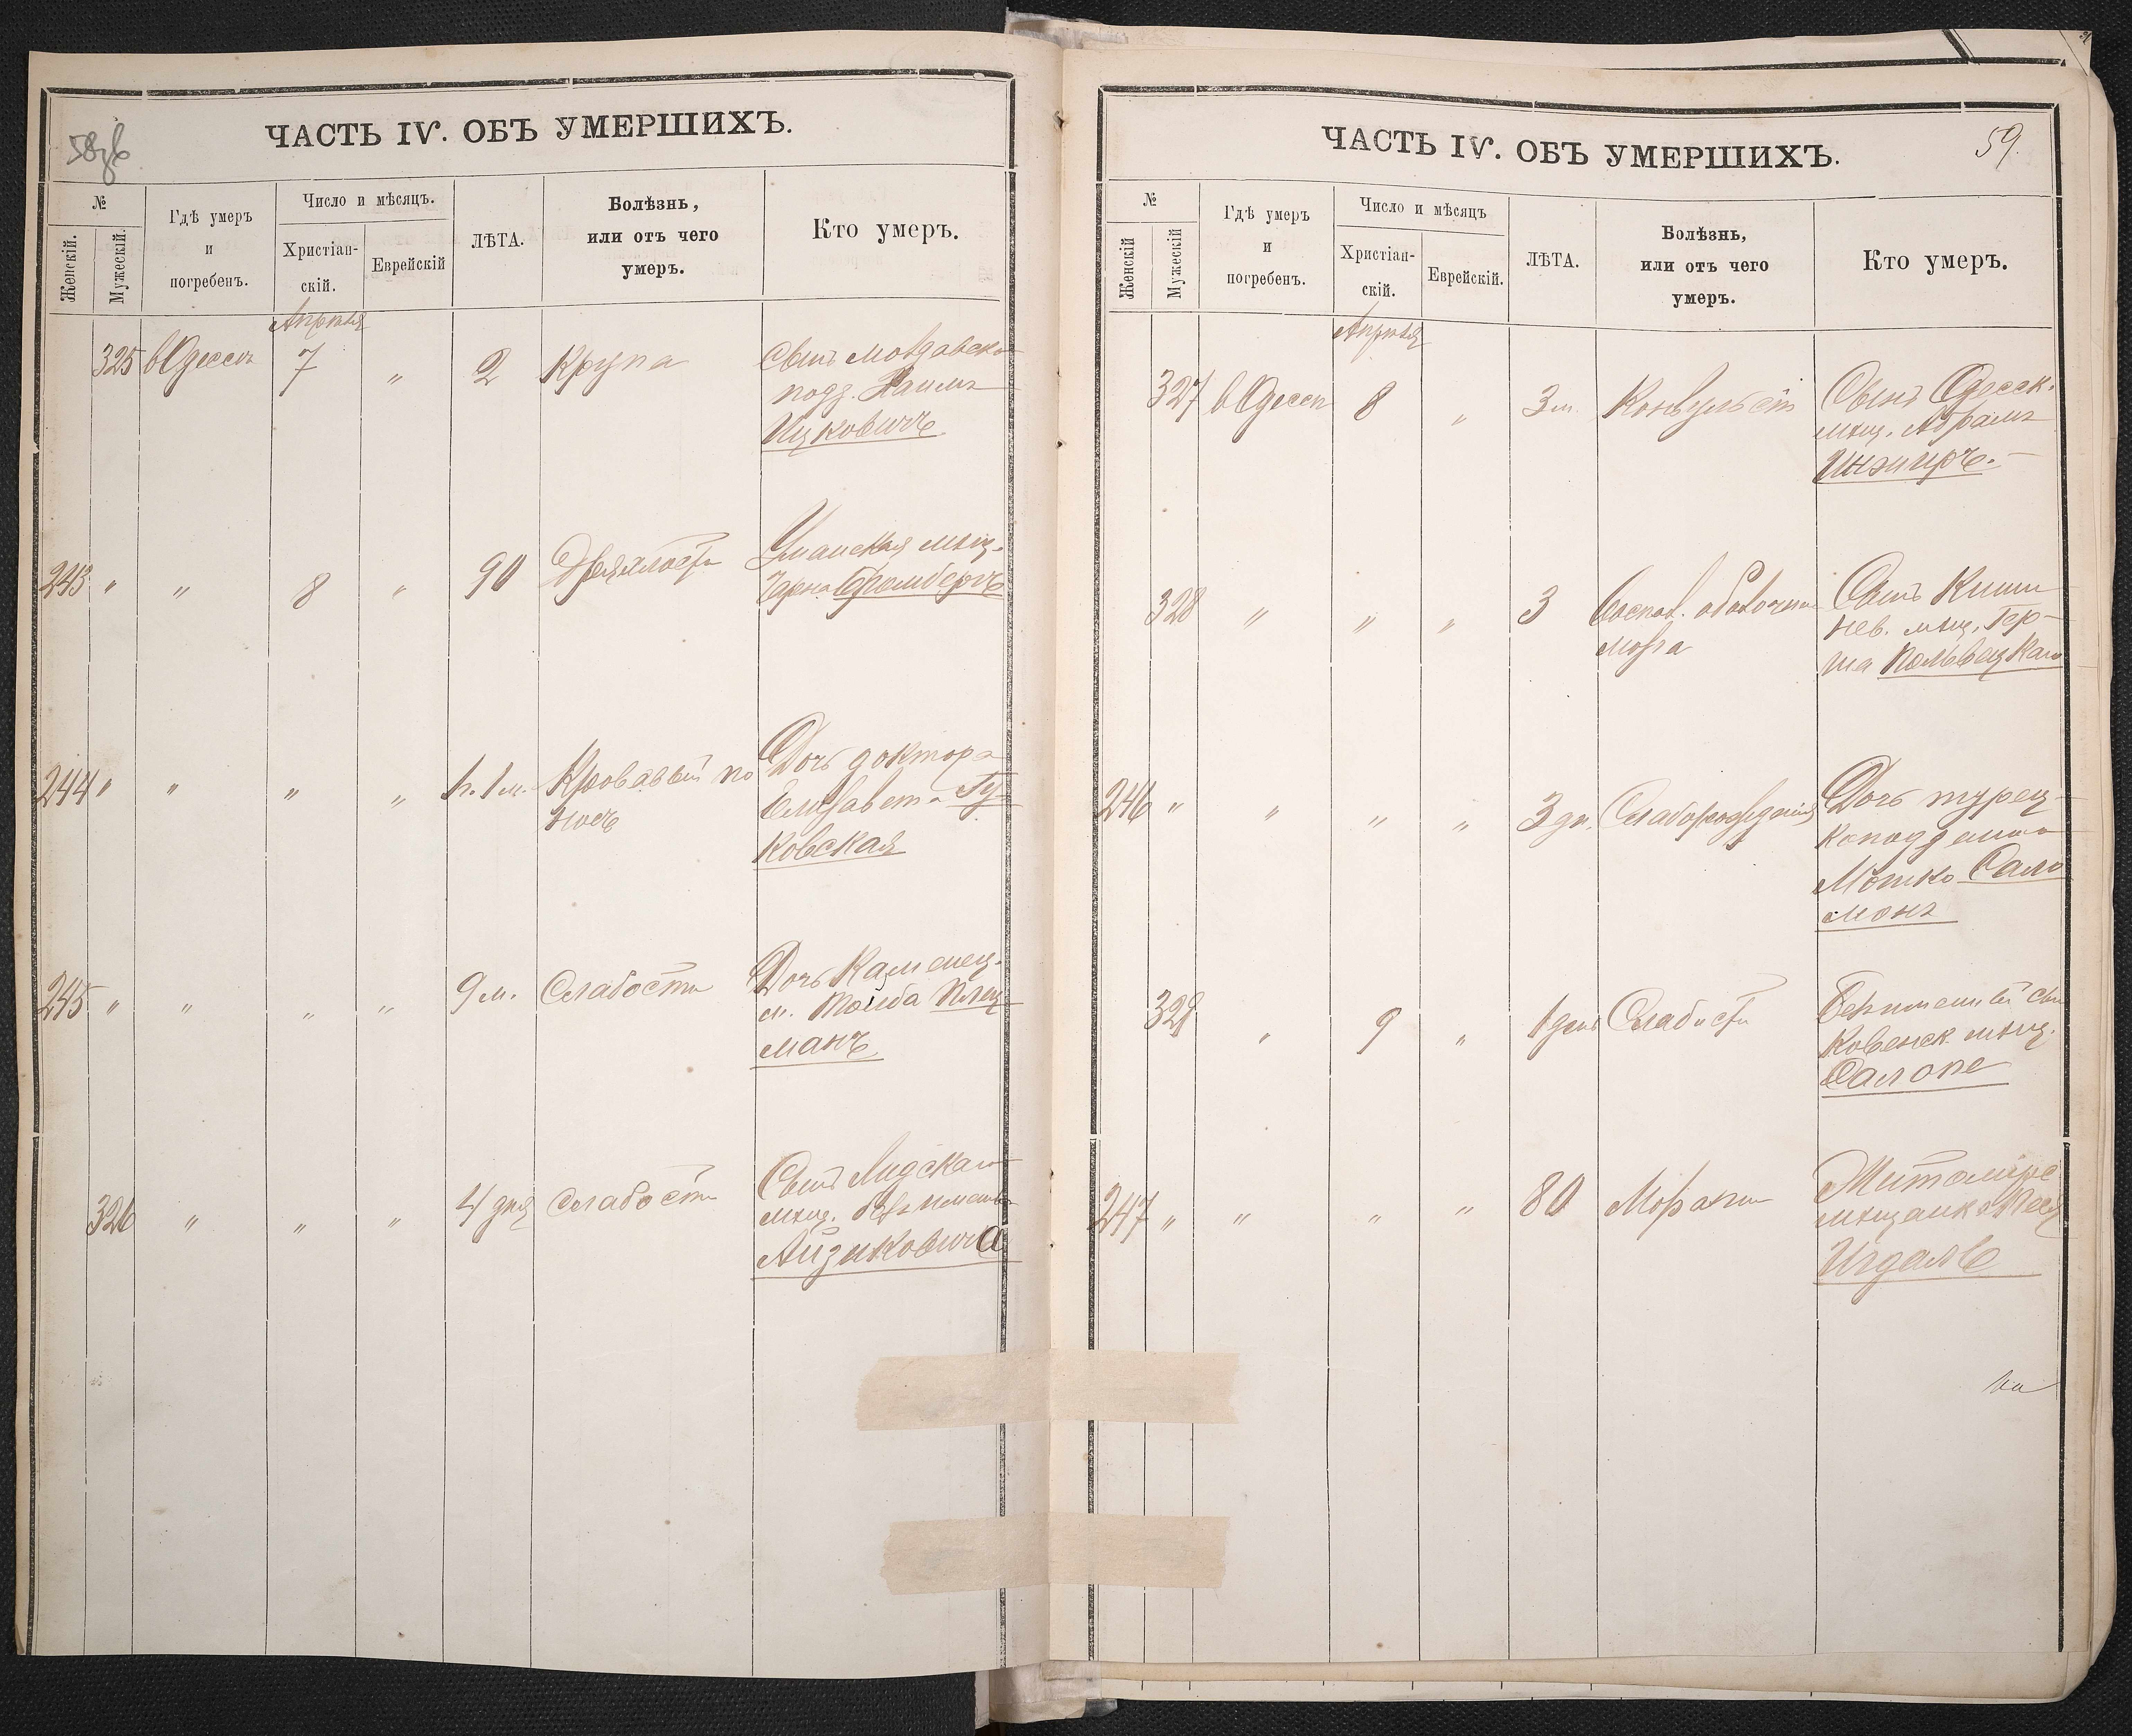 58зв
ЧАСТЬ IV. ОБЪ УМЕРШИХЪ.
№
Женскій.
Мужескій.
Гдѣ умеръ
и
погребенъ.
Число и мѣсяцъ.
Христіан-
скій.
Еврейскій
ЛѢТА.
Болѣзнь,
или отъ чего
умеръ.
Кто умеръ.
Апрѣля
325 в Одессѣ 7 " 2 Крупа Сынъ молдавско
подд. Хаимъ
Ицковичъ
243 " " 8 " 90 Дряхлости Уманская мѣщ.
Бромбергъ
244 " " " " 1 м. Кровавый по Дочь доктора
носъ Елизавета Гу
ковская
245 " " " " 9 м. Слабости Дочь Каменец.
м. Плец
манъ
326 " " " 4 дня слабости Сынъ Лидскаго
мѣщ. безъимен
Айзиковича
59.
ЧАСТЬ IV. ОБЪ УМЕРШИХЪ.
№
Женскій
Мужескій
Гдѣ умеръ
и
погребенъ.
Число и мѣсяцъ
Христіан-
скій.
Еврейскій.
ЛѢТА.
Болѣзнь,
или отъ чего
умеръ.
Кто умеръ.
Апрѣля
327 в Одессѣ 8 " 3 м. Конвульсіи Сынъ Одесск.
мѣщ. Абрамъ
Инжиръ.
328 " " " 3 Воспал. оболочки Сынъ Киши
мозга нев. мѣщ. Гер-
ша
246 " " " " 3 дн. Слаборожденія Дочь турец-
коподдан
Мошко Сало
монъ
329 " 9 " 1 день Слабости Безъименный сын
Ковенск. мѣщ.
Салопе
247 " " " " 80 Житомірс
мѣщанка Песя
Игдалъ